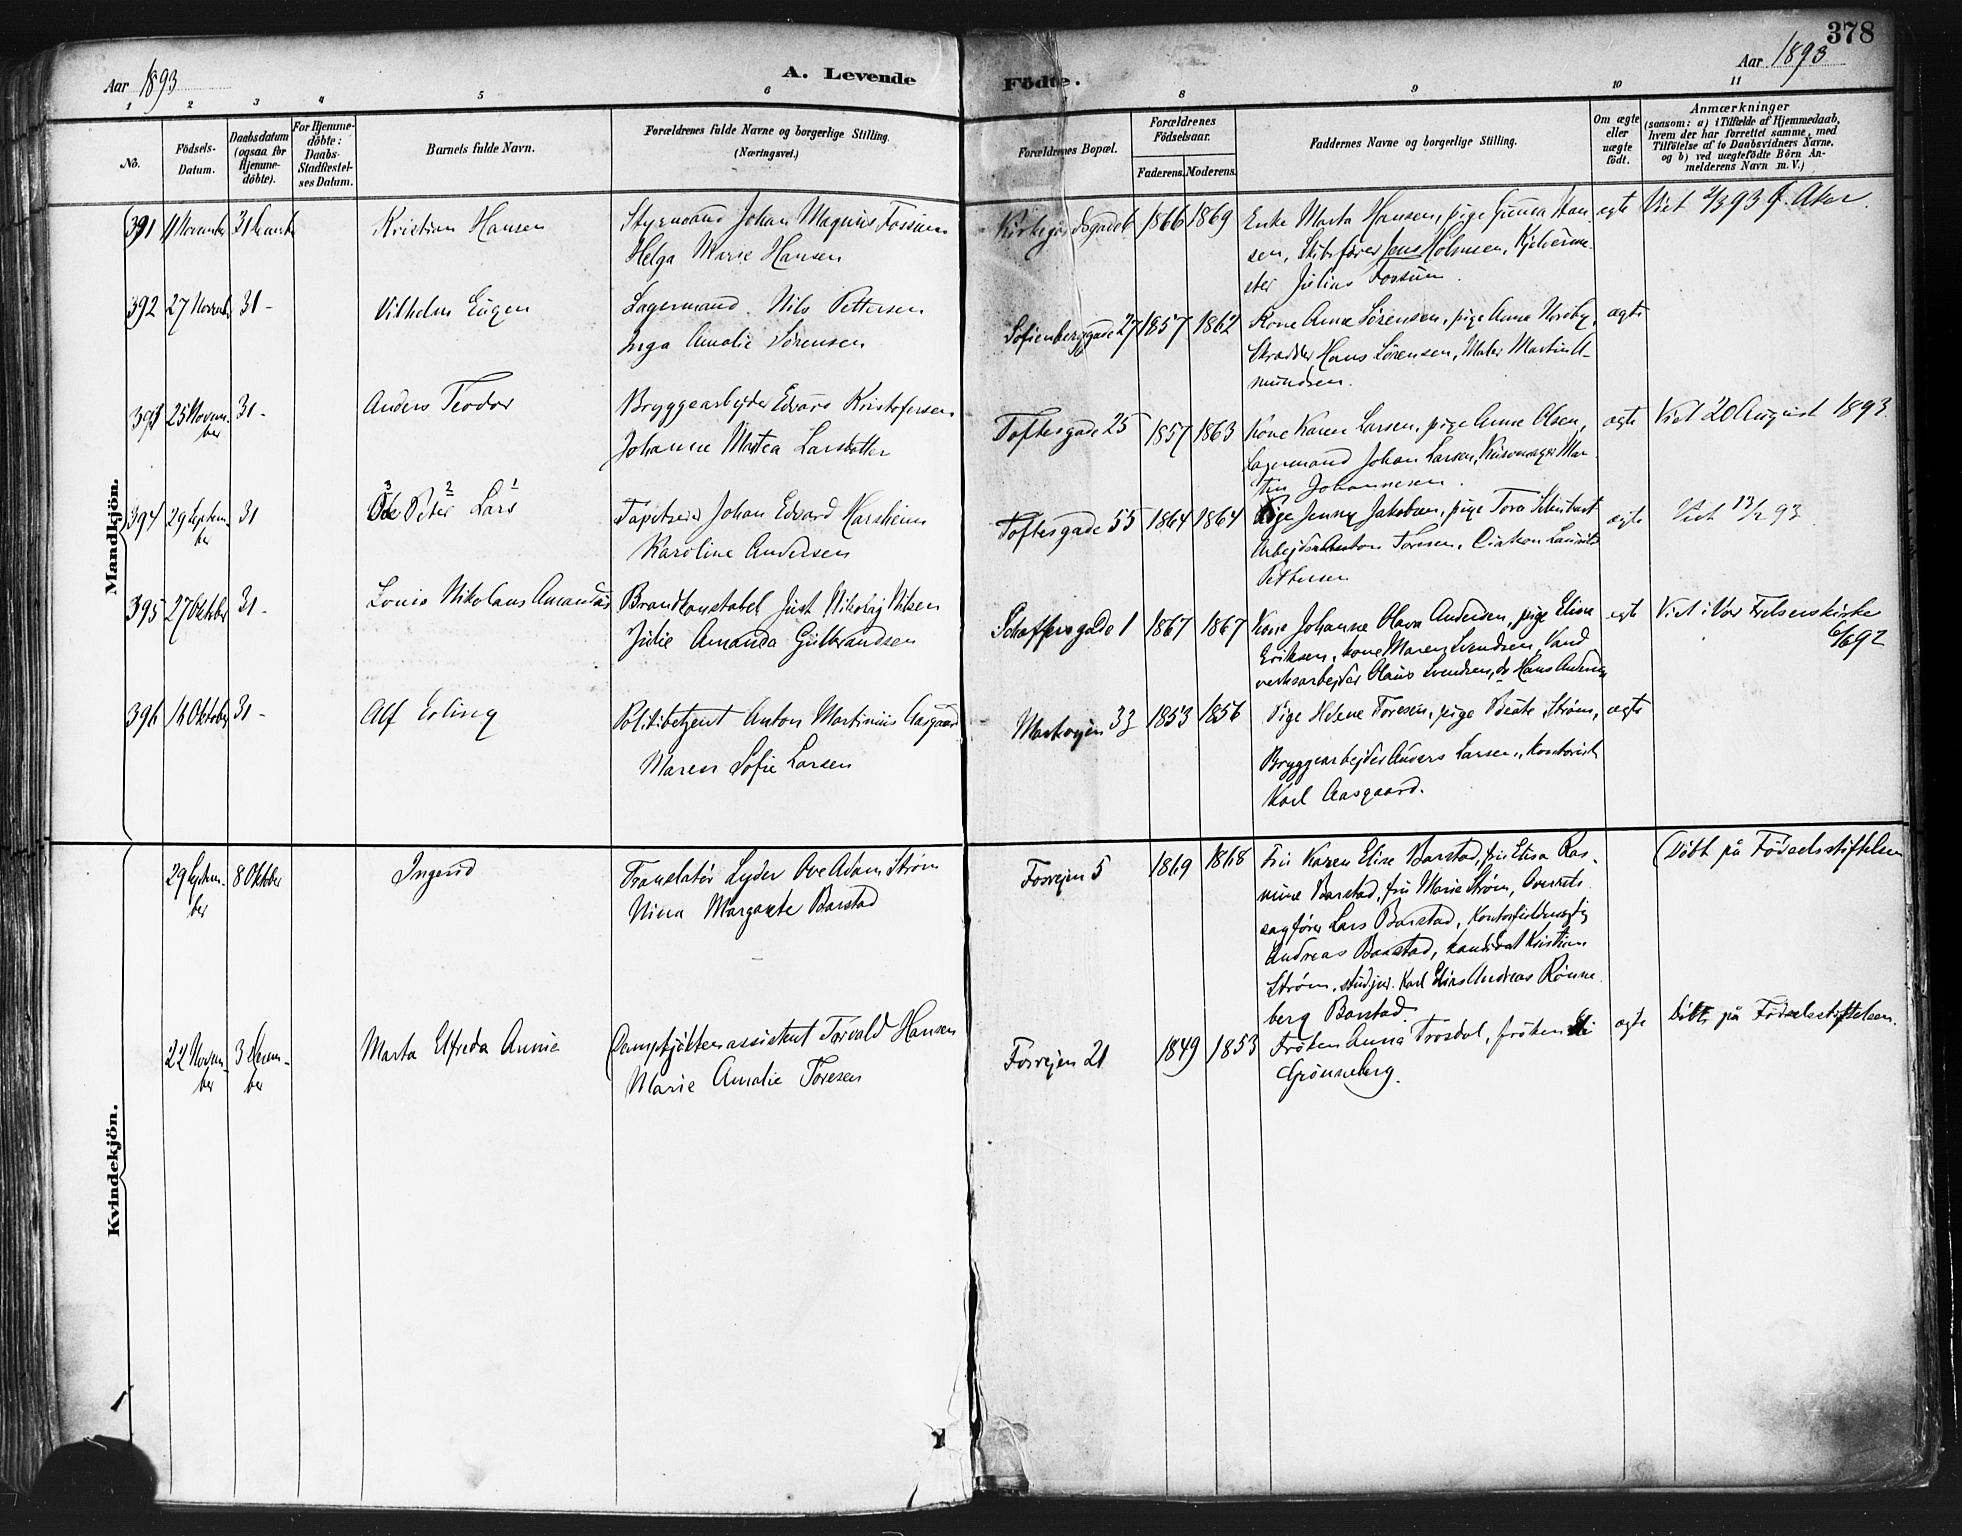 378
Aar 1893
A. Levende Födte.
Aar 1893
1 2 3 4 5 6 8 9 10 11
No.
Födsels-Datum.
Daabsdatum (ogsaa for Hjemme-döbte).
For Hjemme-döbte: Daabs-Stadfæstel-ses Datum.
Barnets fulde Navn.
Forældrenes fulde Navne og borgerlige Stilling. (Næringsvei.)
Forældrenes Bopæl.
Forældrenes Födselsaar.
Faderens. Moderens.
Faddernes Navne og borgerlige Stilling.
Om ægte eller uægte födt.
Anmærkninger
(saasom: a) i Tilfælde af Hjemmedaab,
hvem der har forrettet samme, med
Tilföielse af to Daabsvidners Navne,
og b) ved uægtefödte Börn An-
melderens Navn m. V.)
Mandkjön.
391 11 November 31 Kristian Hansen
Styrmand Johan Magnus Fossum
Helga Marie Hansen
Kirkegårdsgade 6 1866 1869
Enke Marta Hansen, pige Gunda Han-
sen, Skibsfører Jens Holmsen, Kjelerme-
ster Julius Fossum
ægte
Viet 2/3 93 Ø. Aker.
392 27 November 31 - Vilhelm Eugen
Lagermand Nils Pettersen
Inga Amalie Sørensen
Sofienberggade 27 1857 1862
Kone Anna Sørensen, pige Anna Nordby,
Skrædder Hans Sørensen, Maler Martin A-
mundsen.
ægte
393 25 Novem-
ber
31 - Anders Teodor
Bryggearbejder Edvard Kristofersen
Johanne Matea Larsdatter
Toftesgade 25 1857 1863
Kone Karen Larsen, pige Anne Olsen,
Lagermand Johan Larsen, Mar-
tin Johannesen.
ægte
Viet 20 August 1893
394 29 Septem-
ber
31
3 2 1
Ole Peter Lars
Tapetserer Johan Edvard Harsheim
Karoline Andersen
Toftesgade 55 1864 1864
Pige Jenny Jakobsen, pige Tora
Arbejder Anton Toresen, Lauritz
Pettersen
ægte
Viet 13/2 93
395 27 Oktober 31 - Louis Nikolaus Amandus
Brandkonstabel Just Nikolaj Nilsen
Julie Amanda Gulbrandsen
Schaffersgade 1 1867 1867
Kone Johanne Olava Andersen, pige Eline
Eriksen, kone Maren Svendsen, Vand
verksarbejder Olaus Svendsen, do Hans Andersen
ægte
Viet i Vor Frelsers kirke
6/6 92
396 14 Oktober 31 - Alf Erling
Politibetjent Anton Martinius Aasgaard
Maren Sofie Larsen
Markvejen 33 1853 1856
Pige Helene Toresen, pige Beate Strøm,
Bryggearbejder Anders Larsen, Kontorist
Karl Aasgaard.
ægte
Kvindekjön.
29 Septem-
ber
8 Oktober Ingerid
Translatør Lyder Ove Adam Strøm
Nina Margrete Barstad
Fosvejen 5 1869 1868
Fru Karen Elise Barstad, fru Elisa Ras-
mine Barstad, fru Marie Strøm, Overrets-
sagfører Lars Barstad, Kontorfuldmægtig
Andreas Barstad, kandidat Kristian
Strøm, stud. jur. Karl Elias Andreas Rønne-
berg Barstad.
(Döbt på Fødselsstiftelsen
22 Novem-
ber
3 Decem-
ber
Marta Elfrida Annie
Dampkjøkkenassistent Torvald Hansen
Marie Amalie Toresen
Fosvejen 21 1849 1853
Frøken Anna Trosdal, frøken
Grønneberg.
ægte
Döbt på Fødselsstiftelsen.